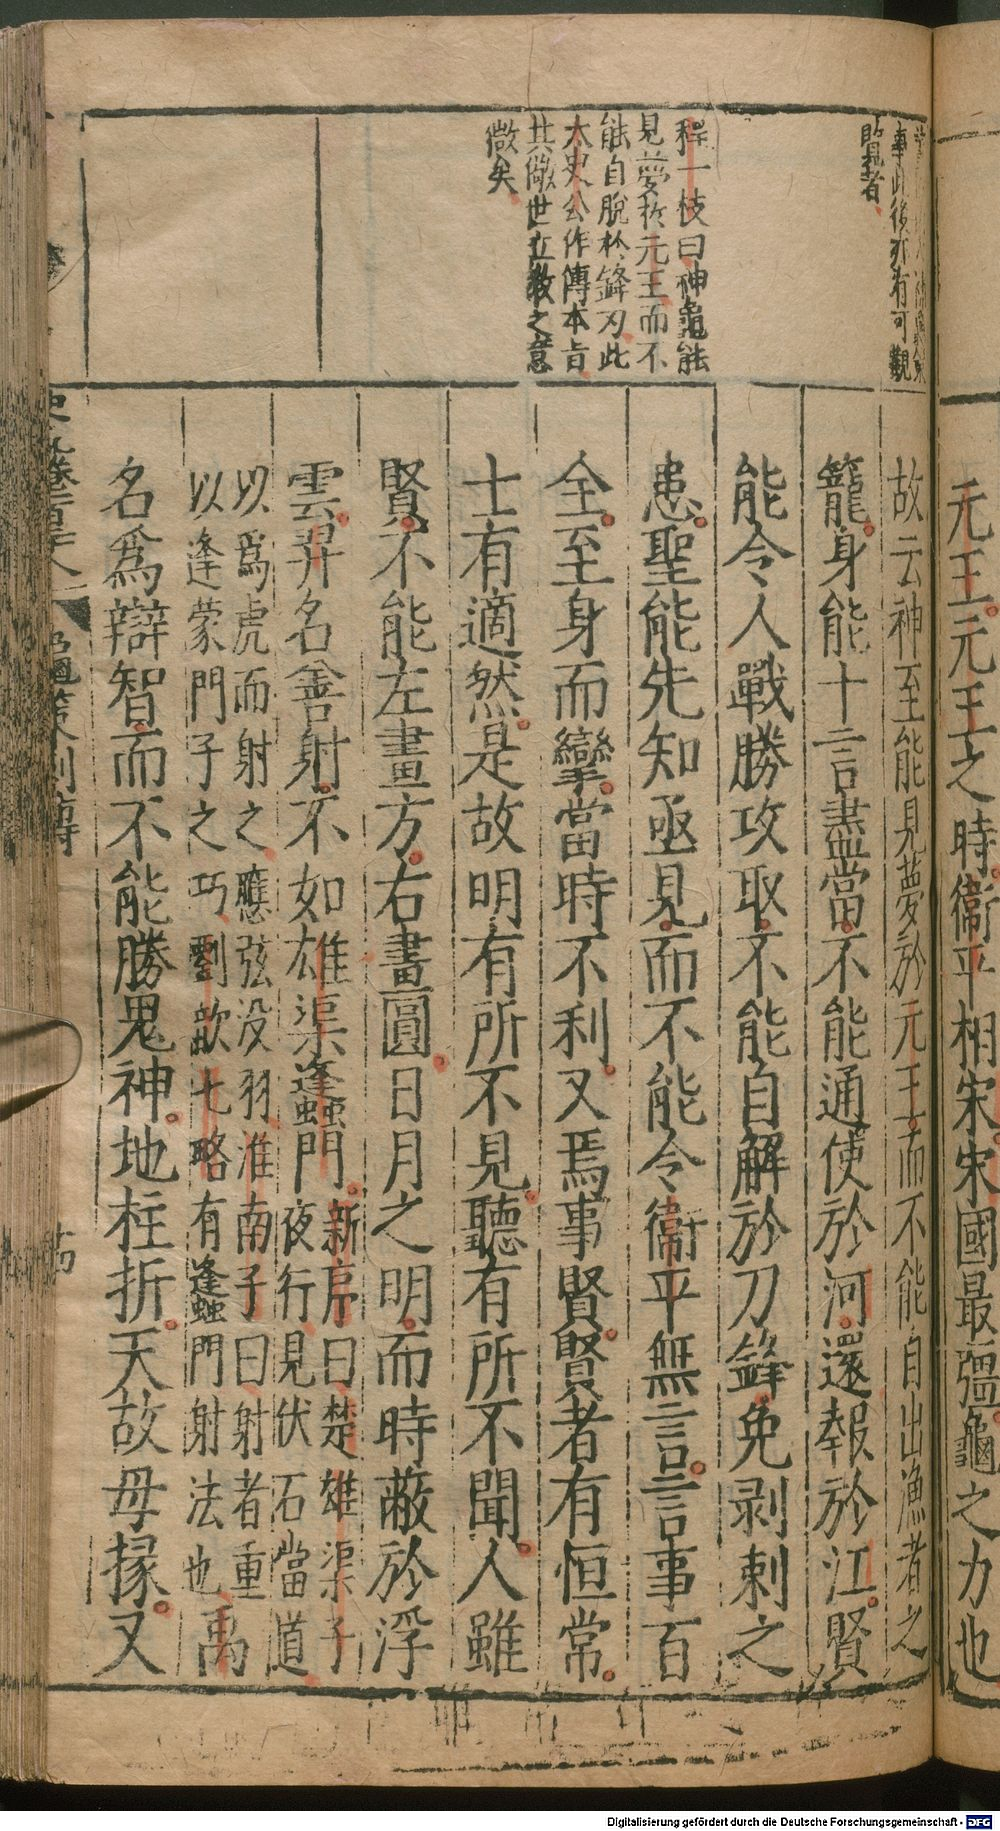 元王元王之時衞平相宋宋國最彊龜之力也
事此後亦有可觀
覽者
程一枝曰神龜能
見夢於元王而不
能自脫於鋒刃此
太史公作傳本旨
其儆世立教之意
微矣
故云神至能見夢於元王而不能自出漁者之
籠身能十言盡當不能通使於河還報於江賢
能令人戰勝攻取不能自解於刀鋒免剥刺之
患聖能先知亟見而不能令衞平無言言事百
全至身而攣當時不利又焉事賢賢者有恒常
士有適然是故明有所不見聽有所不聞人雖
賢不能左畫方右畫圓日月之明而時蔽於浮
雲羿名善射不如雄渠蠭門新序曰楚雄渠子
夜行見伏石當道
以爲虎而射之應弦没羽淮南子曰射者重
以逢蒙門子之巧劉歆七略有蠭門射法也禹
名爲辯智而不能勝鬼神地柱折天故毋椽又
龜策列傳
Digitalisierung gefördert durch die Deutsche Forschungsgemeinschaft - DFG